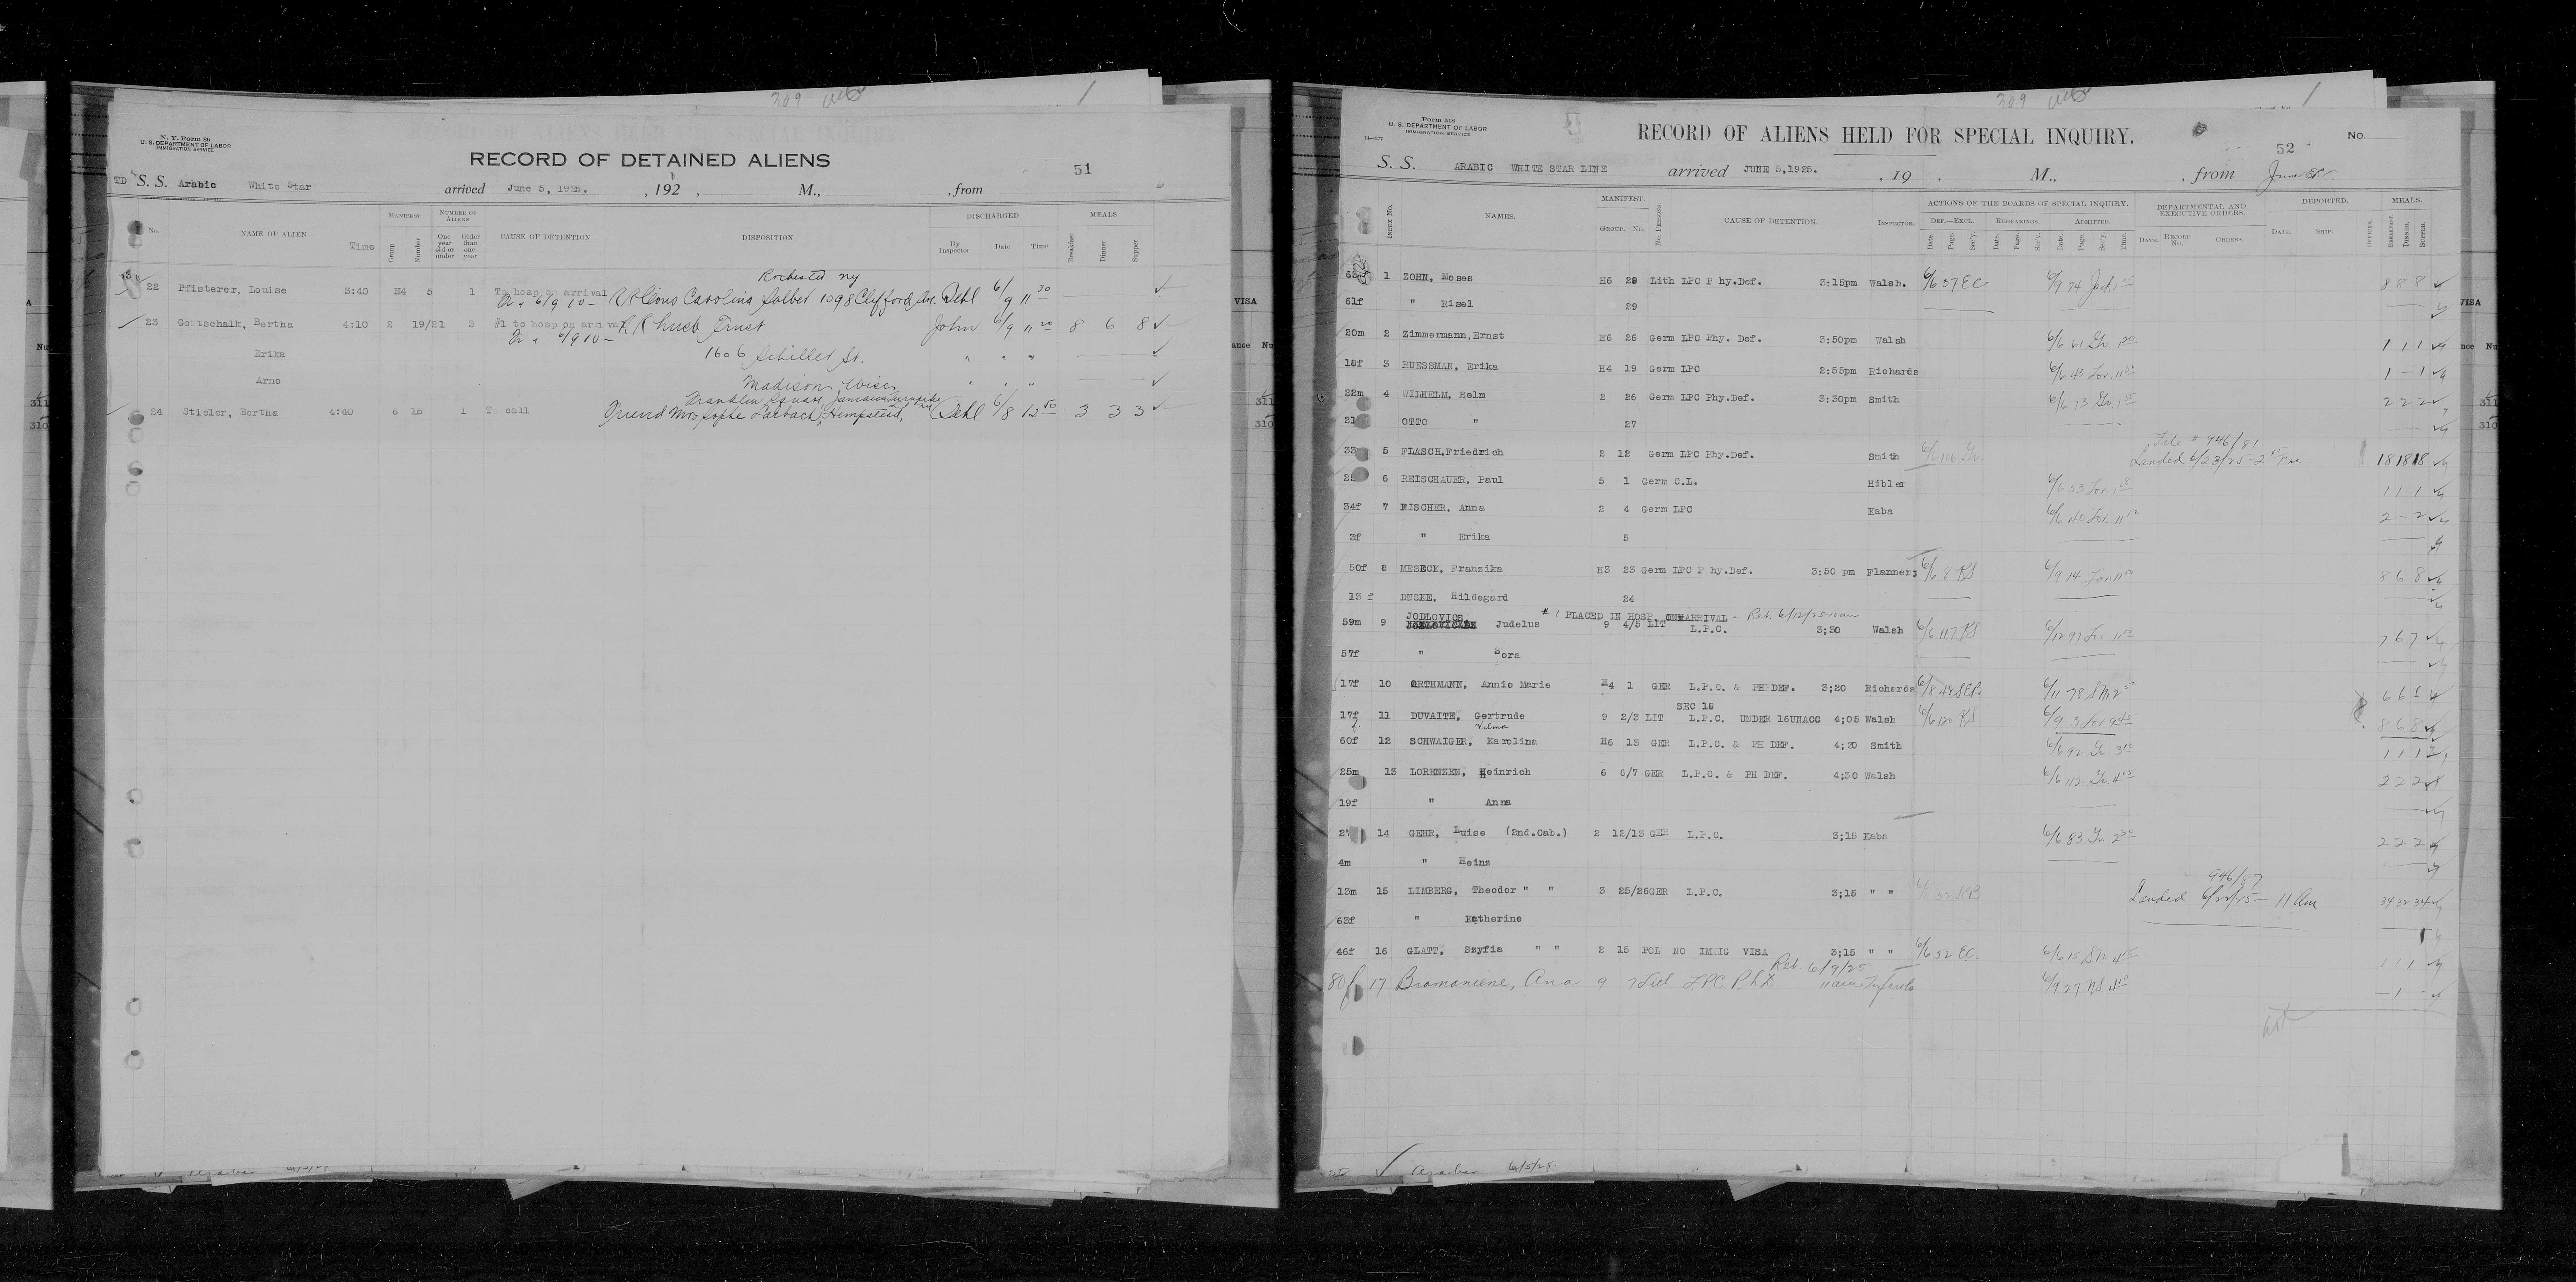 309
1
N. Y. Form 89
U. S. DEPARTMENT OF LABOR
IMMIGRATION SERVICE
RECORD OF DETAINED ALIENS
51
TD S. S. Arabic White Star arrived June 5, 1925. , 192 , M., , from
No. NAME OF ALIEN Time MANIFEST Group Number NUMBER OF ALIENS One year old or under Older than one year CAUSE OF DETENTION DISPOSITION DISCHARGED By Inspector Date Time MEALS Breakfast Dinner Supper
Rochester ny
22 Pfisterer, Louise 3:40 H4 5 1 To hosp on arrival Carolina 1098 Clifford Ave. 6/9 11 30
6/9 10 –
23 Gottschalk, Bertha 4:10 2 19/21 3 #1 to hosp on arrival Ernst John 6/9 11 20 8 6 8
6/9 10 –
Erika 1606 Schiller St. " " "
Arno Madison, Wisc " " "
Franklin Square, Jamaica Turnpike
24 Stieler, Bertha 4:40 6 15 1 To call Friend Mrs Hempstead, 6/8 12 50 3 3 3
309
1
Form 518
U. S. DEPARTMENT OF LABOR
IMMIGRATION SERVICE
14—577
RECORD OF ALIENS HELD FOR SPECIAL INQUIRY.
No.
52
S. S. ARABIC WHITE STAR LINE arrived JUNE 5,1925. , 19 . M., , from
INDEX No. NAMES. MANIFEST. GROUP. No. No. PERSONS. CAUSE OF DETENTION. INSPECTOR. ACTIONS OF THE BOARDS OF SPECIAL INQUIRY. DEF.—EXCL. Date. Page. Sec'y. REHEARINGS. Date. Page. Sec'y. ADMITTED. Date. Page. Sec'y. Time. DEPARTMENTAL AND EXECUTIVE ORDERS. DATE. RECORD No. ORDERS. DEPORTED. DATE. SHIP. OFFICER. MEALS. BREAKFAST. DINNER. SUPPER.
1 ZOHN, Moses H6 28 Lith LPC P hy.Def. 3:15pm Walsh. 6/6 37 EC 6/9 74 8 8 8
61f " Risel 29
20m 2 Zimmermann,Ernst H5 26 Germ LPC Phy. Def. 3:50pm Walsh 6/6 61 1 1 1
18f 3 HUESSMAN, Erika H4 19 Germ LPC 2:55pm Richards 6/6 43 1 – 1
22m 4 WILHELM, Helm 2 26 Germ LPC Phy.Def. 3:30pm Smith 6/6 73 2 2 2
OTTO " 27
File # 946/81
5 FLASCH,Friedrich 2 12 Germ LPC Phy.Def. Smith 6/6 106 Landed 6/23/25 2 pm 18 18 18
6 REISCHAUER, Paul 5 1 Germ C.L. Hibler 6/6 53 1 1 1
34f 7 FISCHER, Anna 2 4 Germ LPC Kaba 6/6 41 2 – 2
2f " Erika 5
50f 8 MESECK, Franzika H3 23 Germ LPC P hy.Def. 3:50 pm Flannery 6/6 8 KS 6/9 14 8 6 8
13 f DNSKE, Hildegard 24
JODLOVICS #1 PLACED IN HOSP. ON ARRIVAL – Ret. 6/12/25
59m 9 Judelus 9 4/5 LIT L.P.C. 3;30 Walsh 6/6 117 KS 6/12 97 7 6 7
57f " Sora
17f 10 ORTHMANN, Annie Marie H4 1 GER L.P.C. & PH DEF. 3;20 Richards 6/8 48 SEB 6/11 78 6 6 6
SEC 18
17f 11 DUVAITE, Gertrude 9 2/3 LIT L.P.C. UNDER 16UNACC 4;05 Walsh 6/6 120 KS 6/9 3 8 6 8
Velma
60f 12 SCHWAIGER, Karolina H6 13 GER L.P.C. & PH DEF. 4;30 Smith 6/6 92 3 10 1 1 1
25m 13 LORENZEN, Heinrich 6 6/7 GER L.P.C. & PH DEF. 4;30 Walsh 6/6 112 2 2 2
19f " Anna
14 GEHR, Luise (2nd.Cab.) 2 12/13 GER L.P.C. 3;15 Kaba 6/6 83 2 2 2
4m " Heinz
946/87
13m 15 LIMBERG, Theodor " " 3 25/26GER L.P.C. 3;15 " " Landed 6/22/25 11 Am 34 32 34
63f " Katherine
46f 16 GLATT, Szyfia " " 2 15 POL NO IMMIG VISA 3;15 " " 6/6 52 EC 6/6 15 1 1 1
Ret. 6/9/25
80f 17 Bromaniene, Ana 9 7 Lit LPC Ph D 6/9 27 – 1 –
Arabic 6/5/25